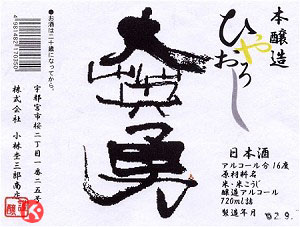 本醸造
ひやおろし
日本酒
アルコール分16度
原材料名
米・米こうじ
醸造アルコール
720ml詰
製造年月
'02.9.
大
勇
●お酒は二十歳になってから。
宇都宮市桜二丁目一番二五号
株式会社 小林 三郎商店